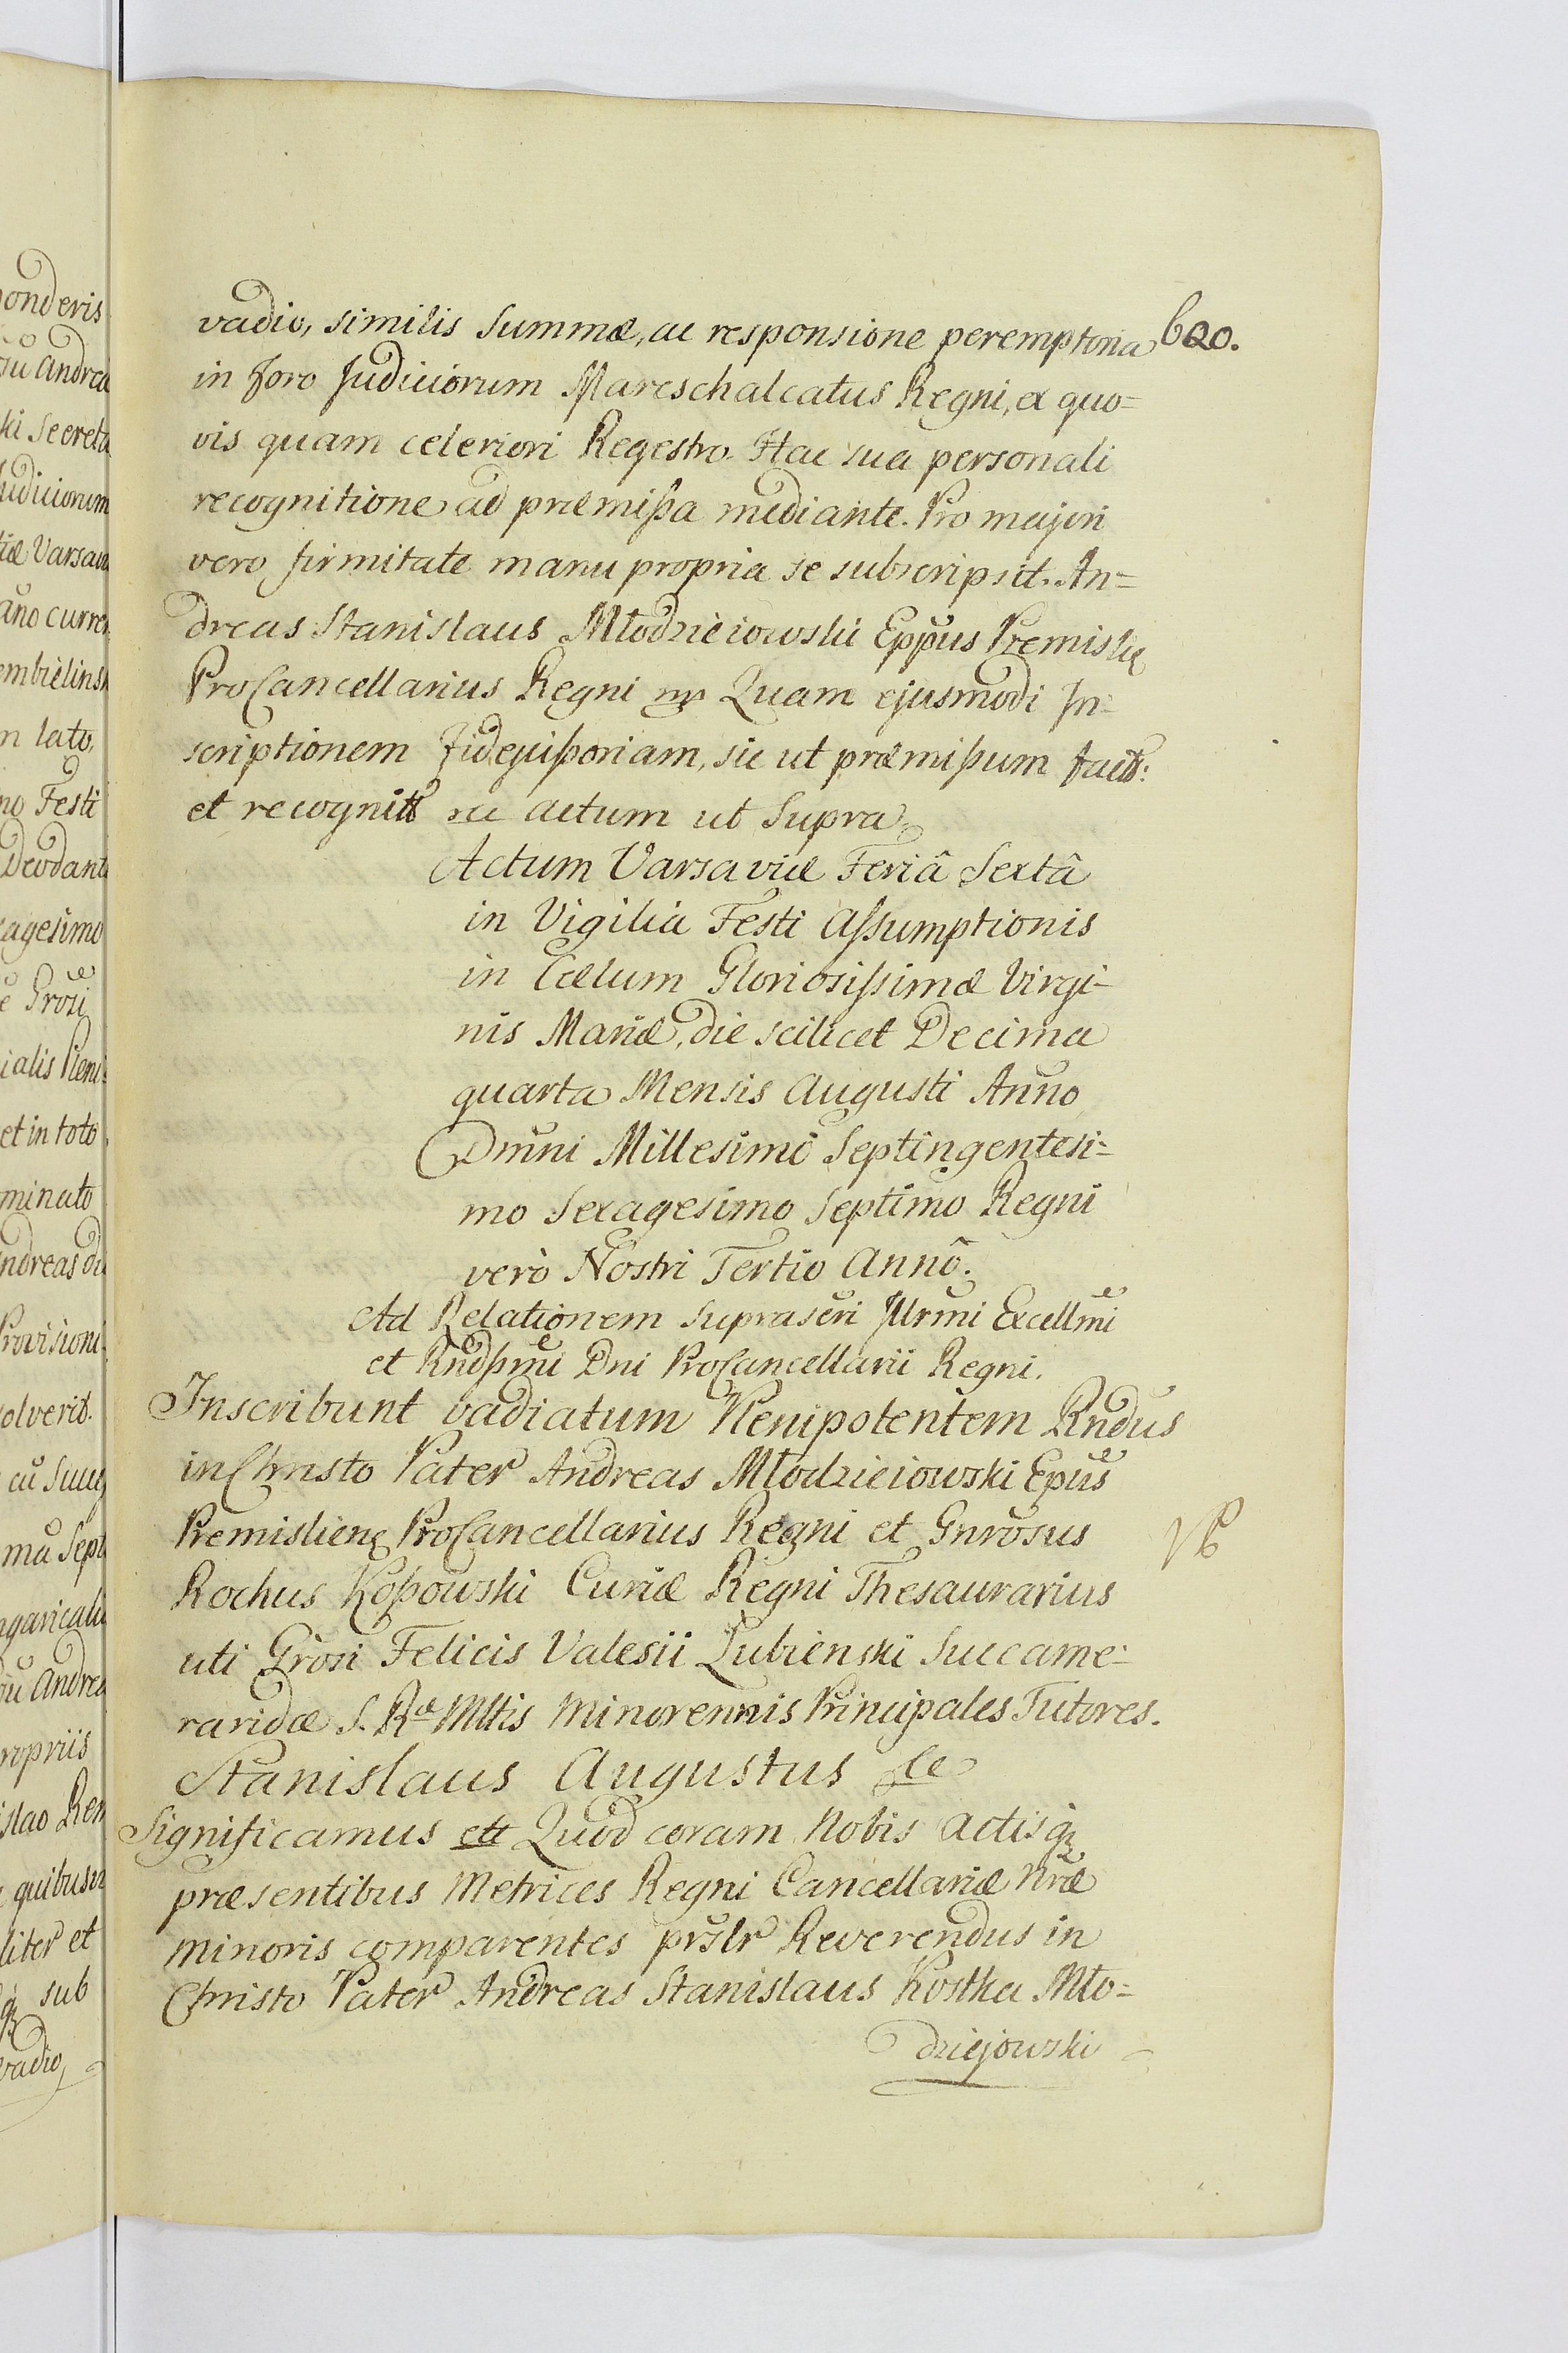 620.
vadio, similis Summæ, ac responsione peremptoria
in foro Judiciorum Mareschalcatus Regni, ex quo=
vis quam celeriori Regestro. Hac sua personali
recognitione ad præmißa mediante. Pro majori
vero firmitate manu propria se subscripsit. An=
dreas Stanislaus Młodzieiowski Eppus Premislię
ProCancellarius Regni mp Quam ejusmodi In=
scriptionem fidejußoriam, sic ut præmißum facit:
et recognitt ac actum ut Supra
Actum Varsaviæ Feriâ Sextâ
in Vigilia Festi Assumptionis
in Cælum Gloriosissimæ Virgi=
nis Mariæ, die scilicet Decima
quarta Mensis Augusti Anno
Dmni Millesimo Septingentesi=
mo Sexagesimo Septimo Regni
verò Nostri Tertio Annô.
Ad Relationem suprascri Illrmi Excellmi
et Rndßmi Dni ProCancellarii Regni.
Inscribunt vadiatum Plenipotentem Rndus
in Christo Pater Andreas Młodzieiowski Epus
Premislienę ProCancellarius Regni et Gnrosus
Rochus Koßowski Curiæ Regni Thesaurarius
uti Grosi Felicis Valesii Lubienski Succame=
raridæ S. Ræ Mttis Minorennis Principales Tutores.
Stanislaus Augustus &ce
Significamus ett Quod coram Nobis Actisq
præsentibus Metrices Regni Cancellariæ Nræ
minoris comparentes prslr Reverendus in
Christo Pater Andreas Stanislaus Kostka Mło=
dziejowski